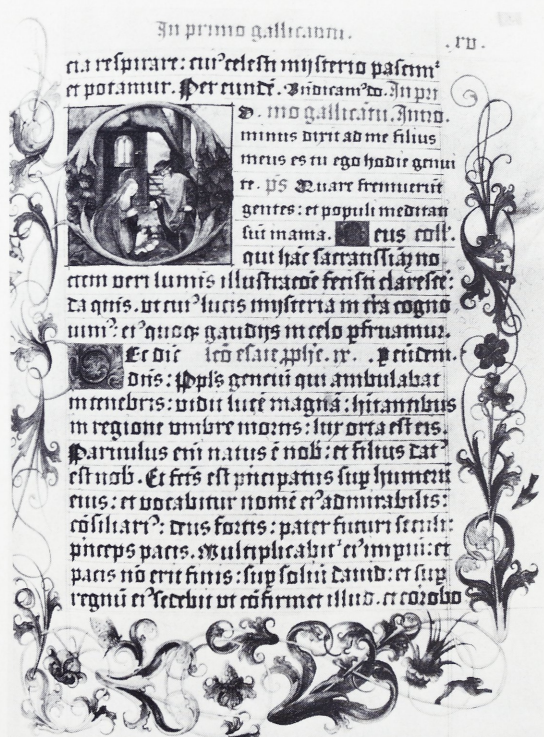 In primo gallicantu.
.xv.
cta respirare: cui⁹ celesti mysterio pascim²
et potamur. Per eundē. Vndicam⁹ do. In pri
mo gallicātu. Intro.
minus dixit ad me filius
meus es tu ego hodie genui
te. ps Quare fremuerūt
gentes: et populi meditati
sūt inania. Deus coll.
qui hāc sacratissimā no
ctem veri luminis illustracōe fecisti clarescē:
da quis. vt cui⁹ lucis mysteria in tra cogno
uim⁹: ei⁹ quoq gaudijs in celo pfruamur.
Et dic lcō esaie pphe. ix. p eundem.
dns: Ppls gencui qui ambulabat
in tenebris: vidit lucē magnā: hitantibus
in regione vmbre mortis: lux orta est eis.
Paruulus eni natus ē nob: et filius dat⁹
est nob. Et fcts est pncipatus sup humerū
eius: et vocabitur nomē ei⁹ admirabilis:
cōsiliari⁹: deus fortis: pater futuri seculi:
pnceps pacis. Multiplicabit² ei⁹ impiū: et
pacis nō erit finis: sup soliū dauid: et sup
regnū ei⁹ sedebit vt cōfirmet illud. et corobo